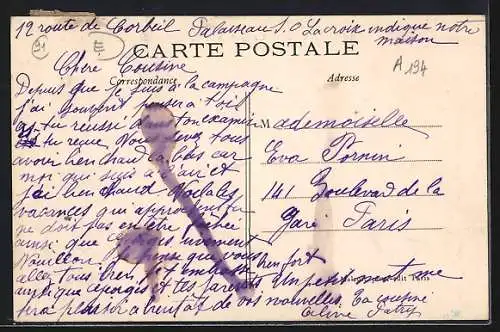 19 route de Corbeil Palaiseau S.O La croix indique notre
maison
91
A 194
CARTE POSTALE
Correspondance
Adresse
Chère Cousine
Depuis que je suis à la campagne
j'ai souvent penser à toi
as-tu reussi dans ton examen
tu reçue Vous devez tous
avoir bien chaud là bas car
moi qui suis à l'air et
j'ai bien chaud Voila les
vacances qui approchent tu
ne doit pas en être fachée
ainsi que Georges vivement
Nouillon Je pense que vous
allez tous bien, je t'embrasse bien fort
ainsi que Georges et tes parents Un petit mot me
fera plaisir à bientôt de vos nouvelles, Ta cousine
Mademoiselle
Eva Pornin
141 Boulevard de la
Gare Paris